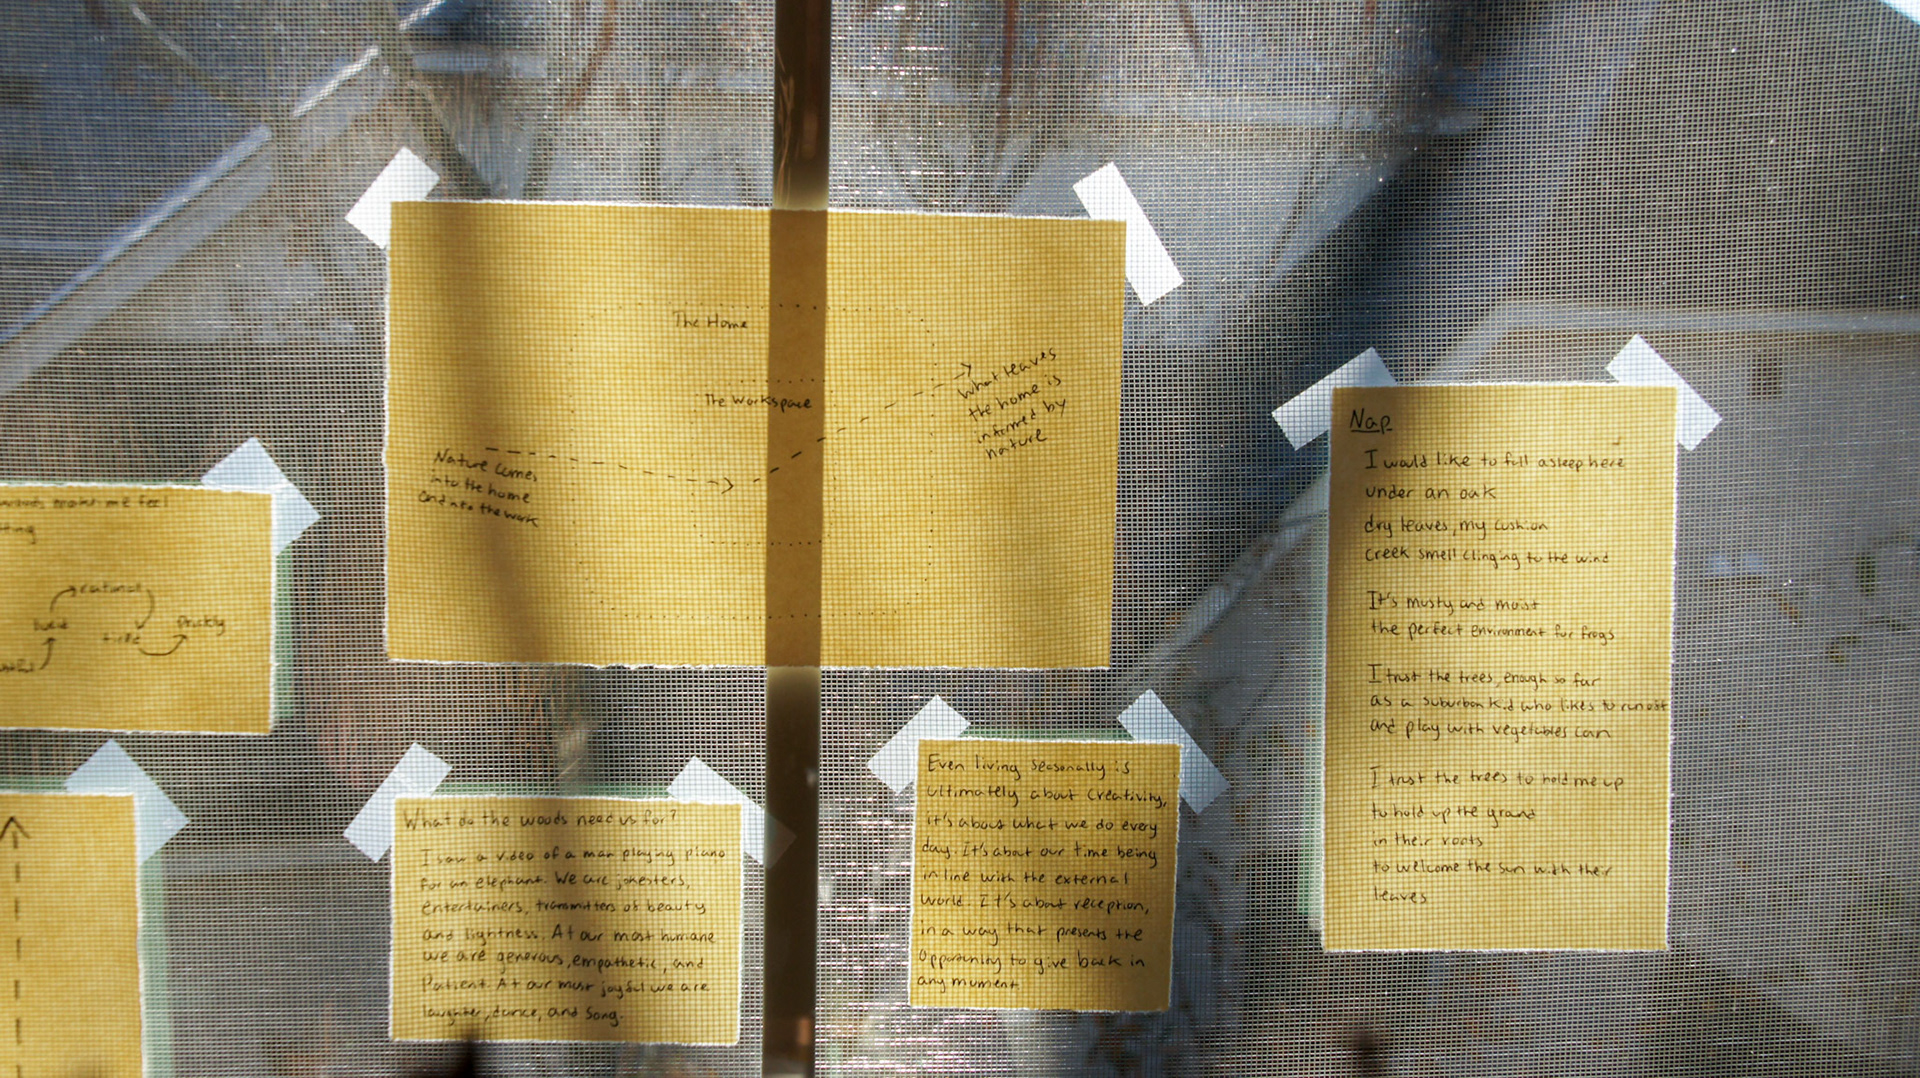 The Home
The Workspace
Nature comes
into the home
and into the work
What leaves
the home is
informed by
nature
make me feel
natural
Prickly
What do the woods need us for?
I saw a video of a man playing piano
for an elephant. We are jokesters,
entertainers, transmitters of beauty
and lightness. At our most humane
we are generous, empathetic, and
Patient. At our most joyful we are
laughter, dance, and song.
Even living seasonally is
ultimately about creativity,
it's about what we do every
day. It's about our time being
in line with the external
world. It's about reception,
in a way that presents the
opportunity to give back in
any moment.
Nap
I would like to fall asleep here
under an oak
dry leaves, my cushion
creek smell clinging to the wind
It's musty and moist
the perfect environment for frogs
I trust the trees, enough so far
as a suburban kid who likes to run
and play with vegetables can
I trust the trees to hold me up
to hold up the ground
in their roots
to welcome the sun with their
leaves